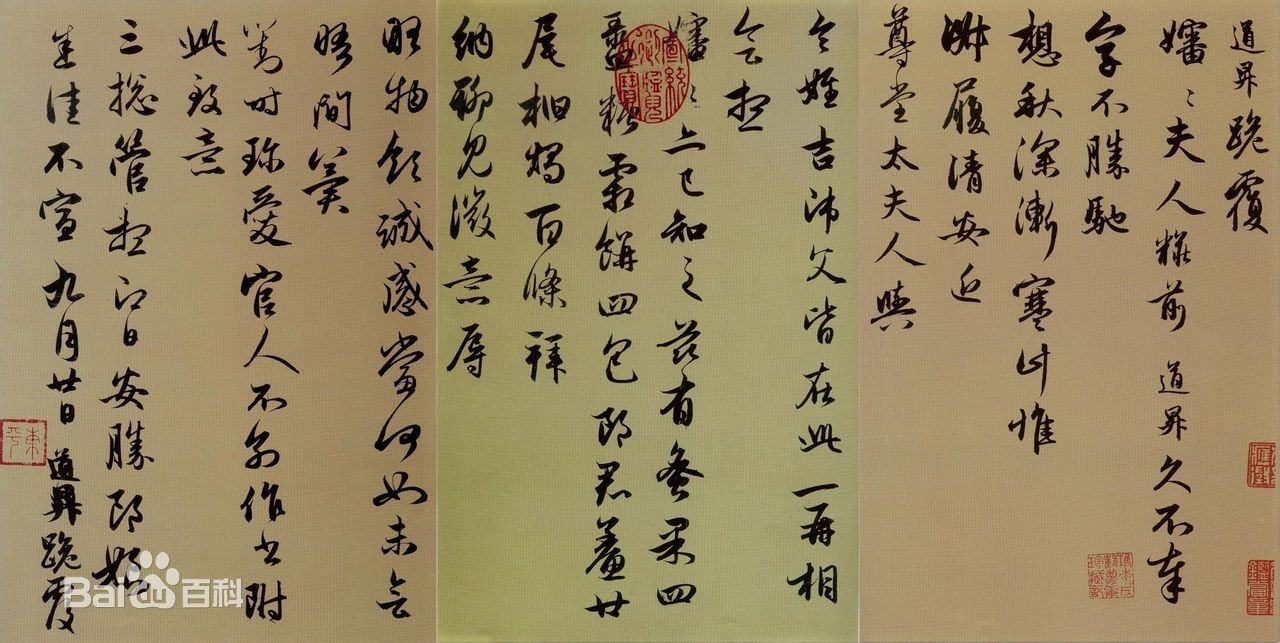 道昇跪覆
嬸〻夫人糚前道昇久不奉
字不勝馳
想秋深漸寒計惟
淑履清安近
尊堂太夫人與
令姪吉師父皆在此一再相
會想
嬸〻亦已知之茲有蜜果四
盝糖霜餅四包郎君鯗廿
尾柏燭百條拜
納聊見微意辱
略物領誠感當何如未會
晤間冀
對時珍愛官人不別作書附
此致意
三總管想即日安勝郎娘
悉佳不宣九月廿日道昇跪覆
東平
Bai百科